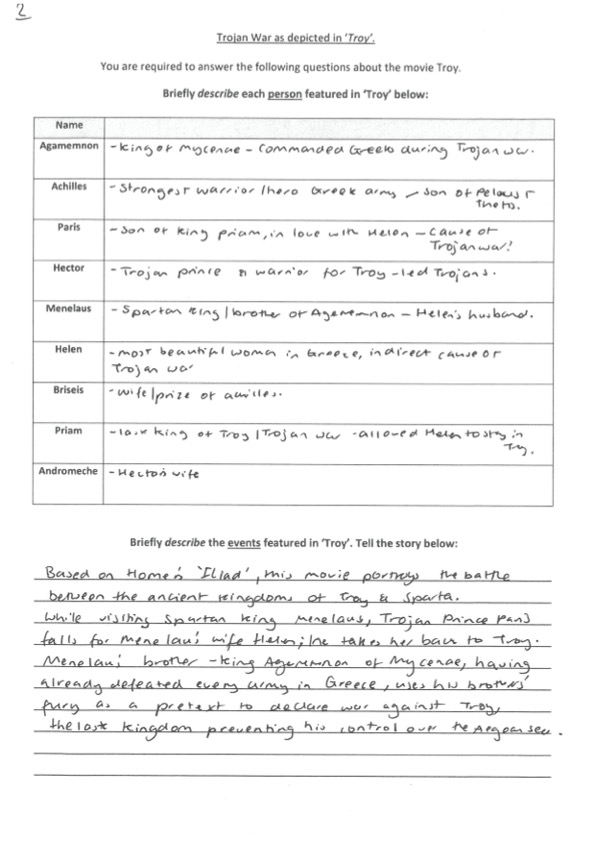 2
Trojan War as depicted in 'Troy'.
You are required to answer the following questions about the movie Troy.
Briefly describe each person featured in 'Troy' below:
Name
Agamemnon - King of Mycenae - Commanded Greeks during Trojan war.
Achilles - Strongest warrior/hero Greek army - son of Peleus &
Thetis.
Paris - Son of King priam, in love with Helen - Cause of
Trojan war!
Hector - Trojan prince & warrior for Troy - led Trojans.
Menelaus - Spartan King/brother of Agamemnon - Helen's husband.
Helen - most beautiful woman in Greece, indirect cause of
Trojan war
Briseis - wife/prize of achilles.
Priam - last King of Troy/Trojan war - allowed Helen to stay in
Troy.
Andromeche - Hector's wife
Briefly describe the events featured in 'Troy'. Tell the story below:
Based on Homer's 'Iliad', this movie portrays the battle
between the ancient kingdoms of Troy & Sparta.
While visiting Spartan king Menelaus, Trojan Prince Paris
falls for Menelaus' wife Helen; he takes her back to Troy.
Menelaus' brother - King Agamemnon of Mycenae, having
already defeated every army in Greece, uses his brothers'
fury as a pretext to declare war against Troy,
the last kingdom preventing his control over the Aegean sea.